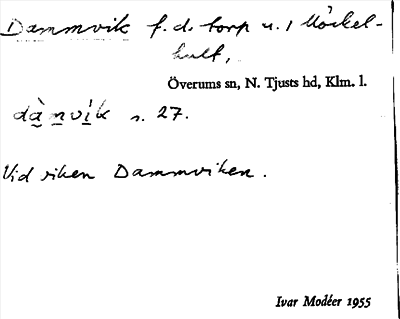 Dammvik f.d. torp u. 1 Möckel-
hult,
Överums sn, N. Tjusts hd, Klm. l.
dà̲n̲ví̲k s. 27.
Vid viken Dammviken.
Ivar Modéer 1955